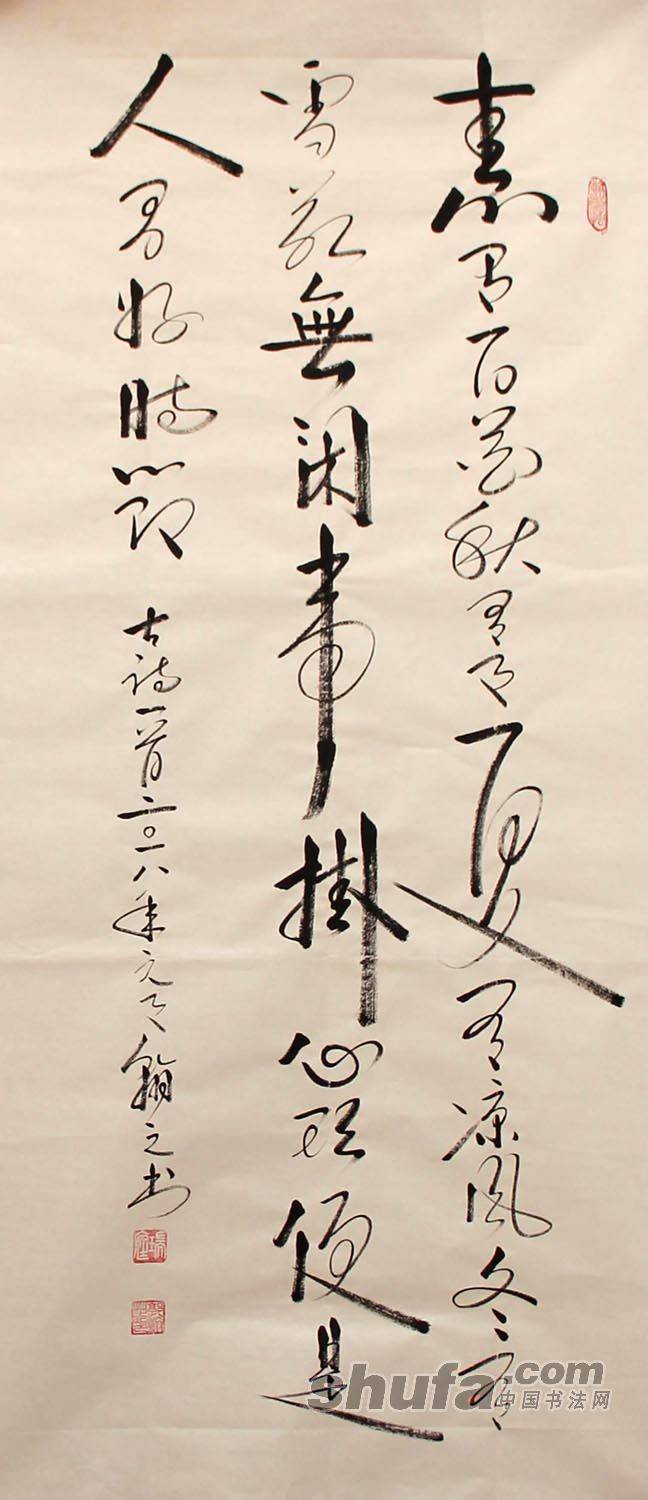 春有百花秋有月夏有凉风冬有
雪若無闲事掛心头便是
人间好时節
古诗一首二〇一八年元月翰之书
shufa.com
中国书法网